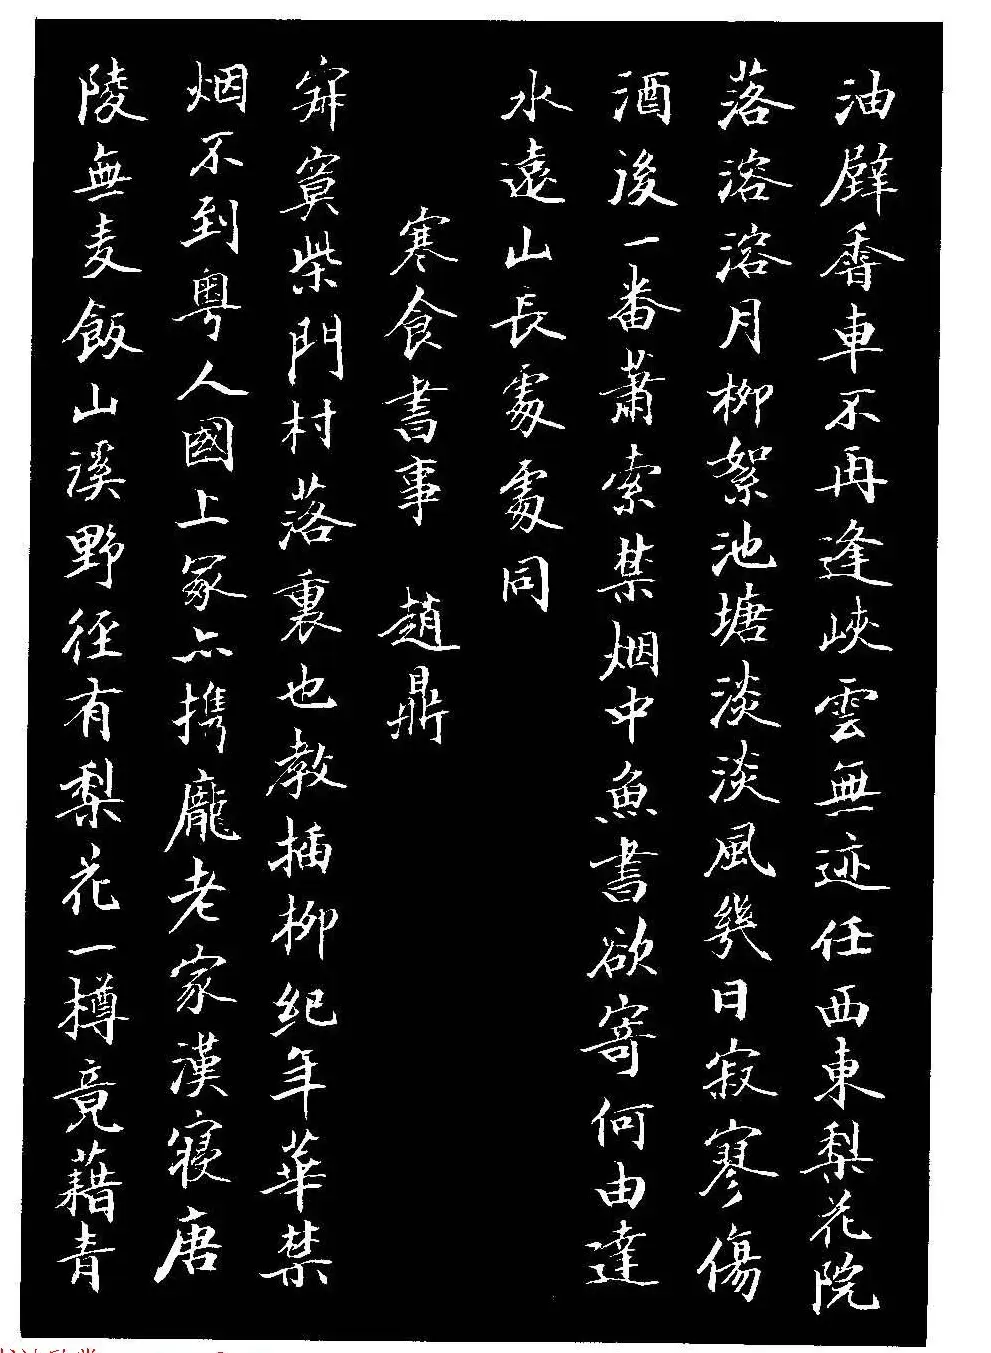 油壁香車不再逢峽雲無迹任西東梨花院
落溶溶月柳絮池塘淡淡風幾日寂寥傷
酒後一番蕭索禁烟中魚書欲寄何由達
水遠山長處處同
寒食書事 趙鼎
寂寞柴門村落裏也教插柳紀年華禁
烟不到粵人國上冢亦携龐老家漢寢唐
陵無麦飯山溪野徑有梨花一樽竟藉青